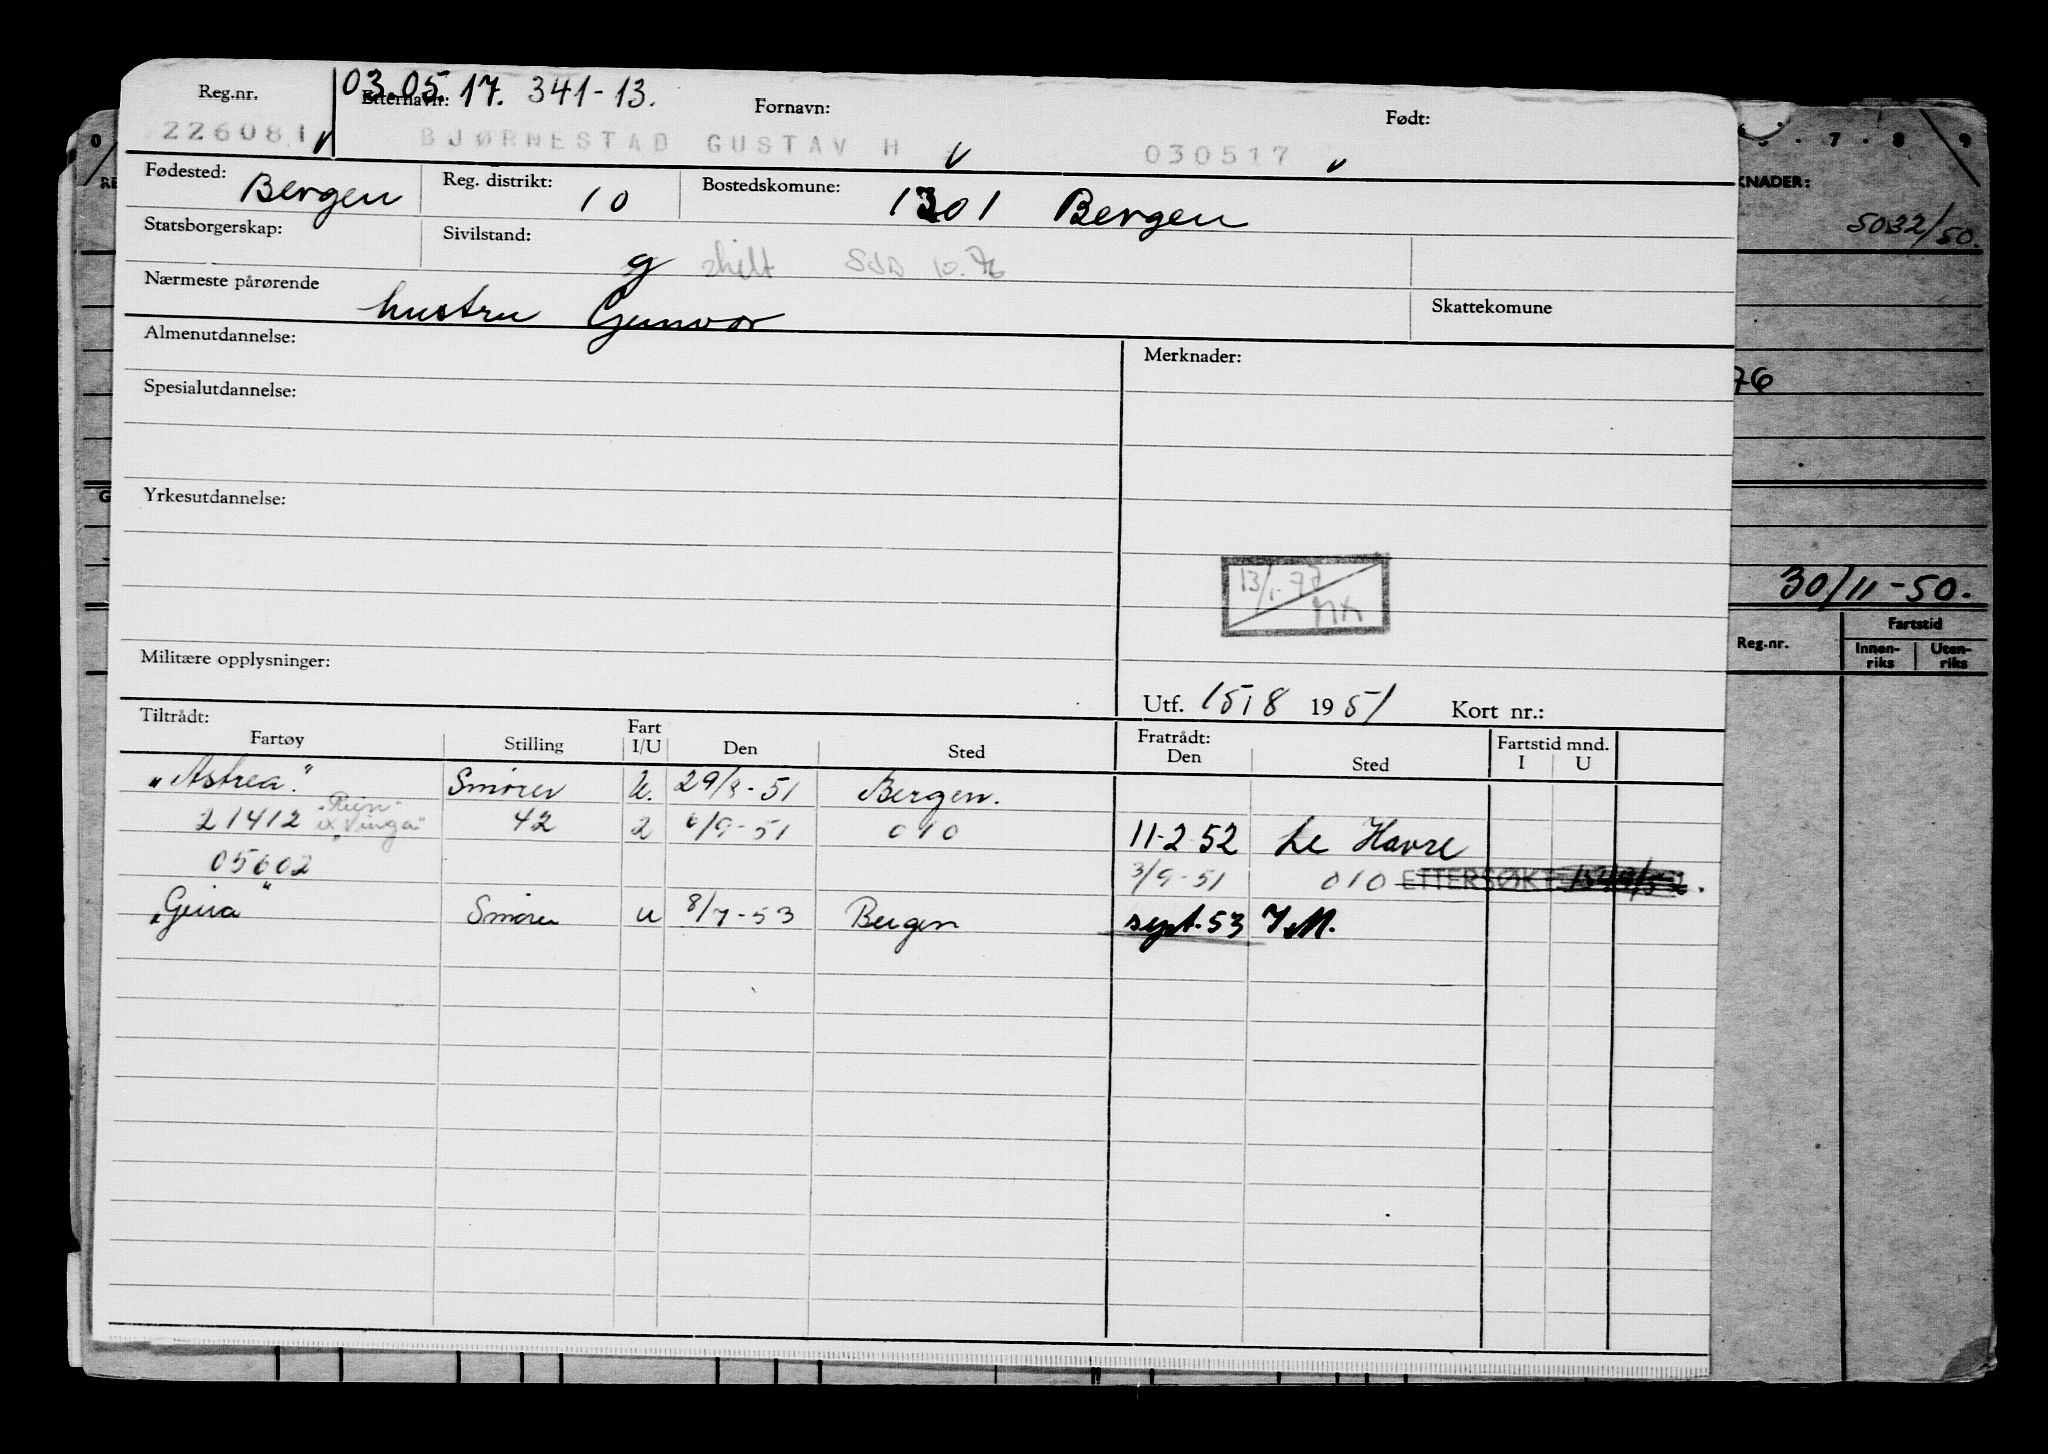 03.05.17. 341-13.
Reg.nr. Etternavn: Fornavn: Født:
226081 BJØRNESTAD GUSTAV H 030517
Fødested: Bergen Reg. distrikt: 10 Bostedskomune: 1301 Bergen
Statsborgerskap: Sivilstand: g skilt 10.76
Nærmeste pårørende hustru Gunvor Skattekomune
Almenutdannelse: Merknader:
Spesialutdannelse:
Yrkesutdannelse:
13/1-77
Militære opplysninger:
Utf. 15/8 1951 Kort nr.:
Tiltrådt: Fratrådt:
Fartøy Stilling Fart I/U Den Sted Den Sted Fartstid mnd. I U
"Astrea" Smører U. 29/8-51 Bergen.
21412 "Rein" ex "Vinga" 42 2 6/9-51 010 11-2-52 Le Havre
05602 3/9-51 010 ETTERSØKT
"Geira" Smører U 8/7-53 Bergen sept.53 I.M.
0 6 . 7 . 8 . 9
RE
KNADER:
5032/50.
76
G
30/11-50.
Reg.nr. Fartstid
Innen-riks Uten-riks